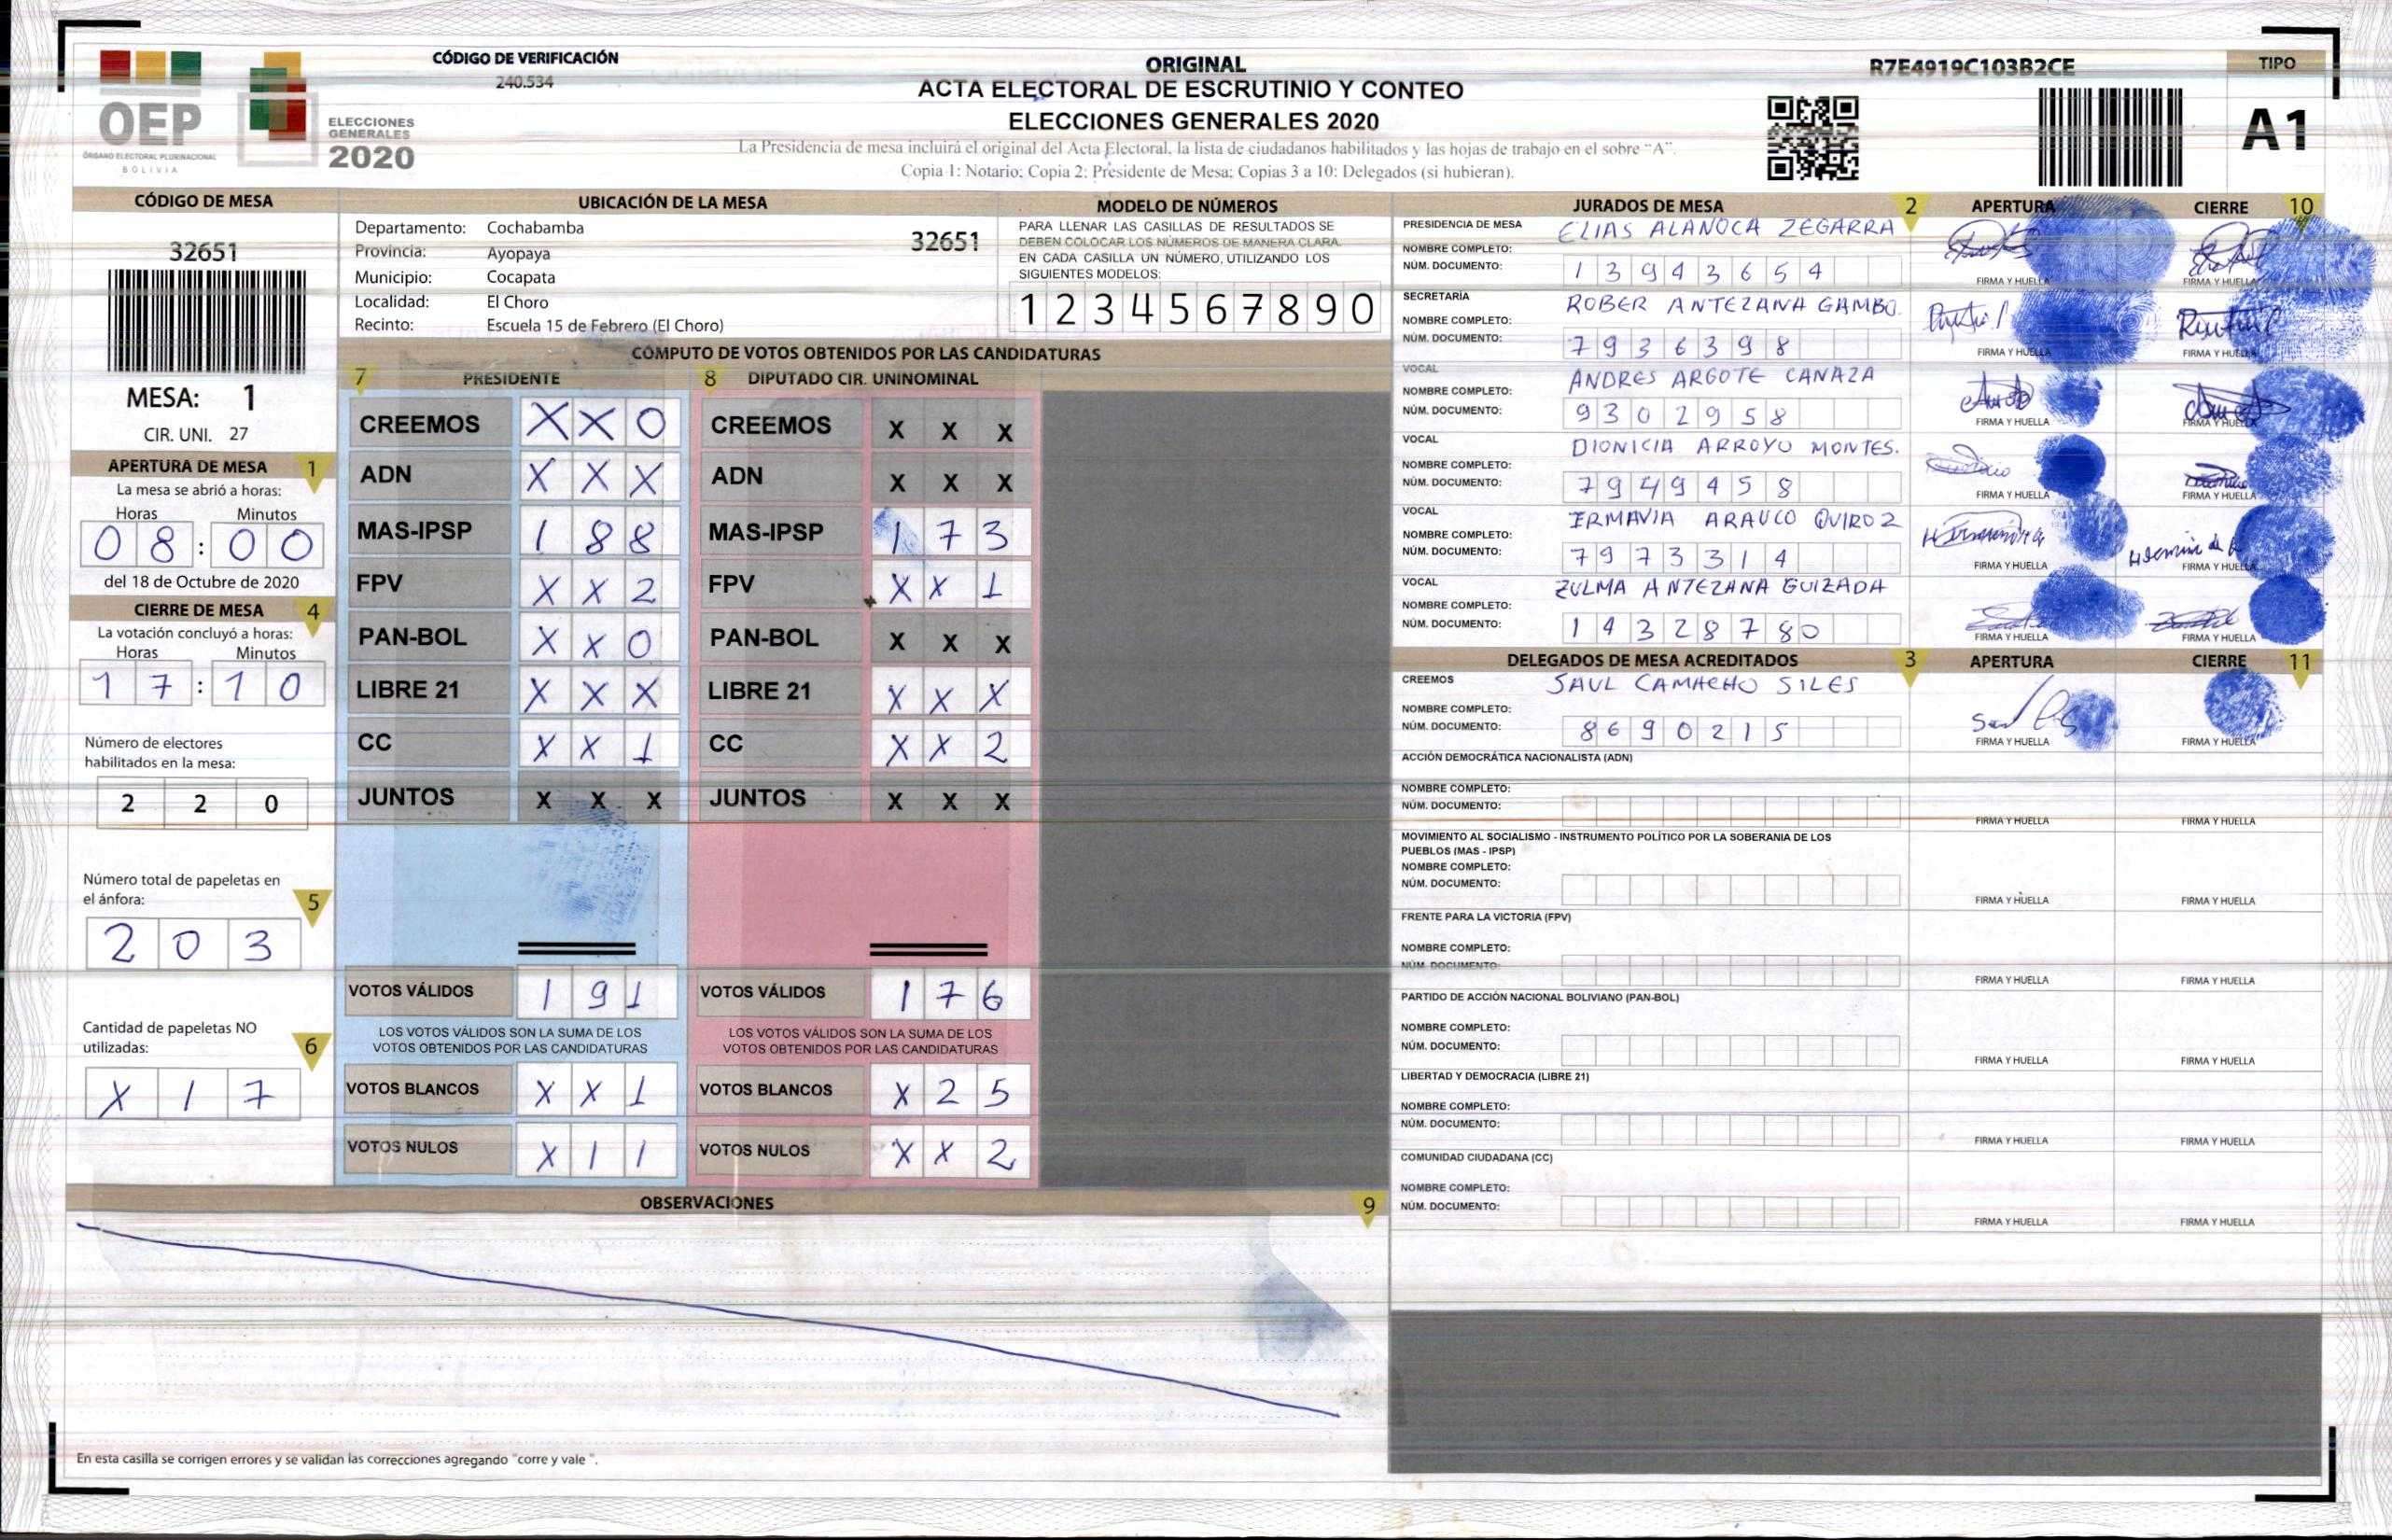 OEP
ÓRGANO ELECTORAL PLURINACIONAL
BOLIVIA
ELECCIONES
GENERALES
2020
CÓDIGO DE VERIFICACIÓN
240.534
ORIGINAL
ACTA ELECTORAL DE ESCRUTINIO Y CONTEO
ELECCIONES GENERALES 2020
La Presidencia de mesa incluirá el original del Acta Electoral, la lista de ciudadanos habilitados y las hojas de trabajo en el sobre “A”.
Copia 1: Notario; Copia 2: Presidente de Mesa; Copias 3 a 10: Delegados (si hubieran).
R7E4919C103B2CE
TIPO
A1
CÓDIGO DE MESA
32651
MESA: 1
CIR. UNI. 27
UBICACIÓN DE LA MESA
Departamento: Cochabamba
32651
Provincia: Ayopaya
Municipio: Cocapata
Localidad: El Choro
Recinto: Escuela 15 de Febrero (El Choro)
MODELO DE NÚMEROS
PARA LLENAR LAS CASILLAS DE RESULTADOS SE
DEBEN COLOCAR LOS NÚMEROS DE MANERA CLARA.
EN CADA CASILLA UN NÚMERO, UTILIZANDO LOS
SIGUIENTES MODELOS:
1 2 3 4 5 6 7 8 9 0
APERTURA DE MESA 1
La mesa se abrió a horas:
Horas Minutos
0 8 : 0 0
del 18 de Octubre de 2020
CIERRE DE MESA 4
La votación concluyó a horas:
Horas Minutos
1 7 : 1 0
Número de electores
habilitados en la mesa:
2 2 0
Número total de papeletas en
el ánfora: 5
2 0 3
Cantidad de papeletas NO
utilizadas: 6
X 1 7
CÓMPUTO DE VOTOS OBTENIDOS POR LAS CANDIDATURAS
7 PRESIDENTE
CREEMOS X X 0
ADN X X X
MAS-IPSP 1 8 8
FPV X X 2
PAN-BOL X X 0
LIBRE 21 X X X
CC X X 1
JUNTOS X X X
VOTOS VÁLIDOS 1 9 1
LOS VOTOS VÁLIDOS SON LA SUMA DE LOS
VOTOS OBTENIDOS POR LAS CANDIDATURAS
VOTOS BLANCOS X X 1
VOTOS NULOS X 1 1
8 DIPUTADO CIR. UNINOMINAL
CREEMOS X X X
ADN X X X
MAS-IPSP 1 7 3
FPV X X 1
PAN-BOL X X X
LIBRE 21 X X X
CC X X 2
JUNTOS X X X
VOTOS VÁLIDOS 1 7 6
LOS VOTOS VÁLIDOS SON LA SUMA DE LOS
VOTOS OBTENIDOS POR LAS CANDIDATURAS
VOTOS BLANCOS X 2 5
VOTOS NULOS X X 2
OBSERVACIONES 9
En esta casilla se corrigen errores y se validan las correcciones agregando "corre y vale ".
JURADOS DE MESA 2 APERTURA CIERRE 10
PRESIDENCIA DE MESA
NOMBRE COMPLETO: ELIAS ALANOCA ZEGARRA
NÚM. DOCUMENTO: 1 3 9 4 3 6 5 4
FIRMA Y HUELLA FIRMA Y HUELLA
SECRETARÍA
NOMBRE COMPLETO: ROBER ANTEZANA GAMBO.
NÚM. DOCUMENTO: 7 9 3 6 3 9 8
FIRMA Y HUELLA FIRMA Y HUELLA
VOCAL
NOMBRE COMPLETO: ANDRES ARGOTE CANAZA
NÚM. DOCUMENTO: 9 3 0 2 9 5 8
FIRMA Y HUELLA FIRMA Y HUELLA
VOCAL
NOMBRE COMPLETO: DIONICIA ARROYO MONTES.
NÚM. DOCUMENTO: 7 9 4 9 4 5 8
FIRMA Y HUELLA FIRMA Y HUELLA
VOCAL
NOMBRE COMPLETO: ERMAVIA ARAUCO QUIROZ
NÚM. DOCUMENTO: 7 9 7 3 3 1 4
FIRMA Y HUELLA FIRMA Y HUELLA
VOCAL
NOMBRE COMPLETO: ZULMA ANTEZANA GUIZADA
NÚM. DOCUMENTO: 1 4 3 2 8 7 8 0
FIRMA Y HUELLA FIRMA Y HUELLA
DELEGADOS DE MESA ACREDITADOS 3 APERTURA CIERRE 11
CREEMOS
NOMBRE COMPLETO: SAUL CAMACHO SILES
NÚM. DOCUMENTO: 8 6 9 0 2 1 5
FIRMA Y HUELLA FIRMA Y HUELLA
ACCIÓN DEMOCRÁTICA NACIONALISTA (ADN)
NOMBRE COMPLETO:
NÚM. DOCUMENTO:
FIRMA Y HUELLA FIRMA Y HUELLA
MOVIMIENTO AL SOCIALISMO - INSTRUMENTO POLÍTICO POR LA SOBERANIA DE LOS
PUEBLOS (MAS - IPSP)
NOMBRE COMPLETO:
NÚM. DOCUMENTO:
FIRMA Y HUELLA FIRMA Y HUELLA
FRENTE PARA LA VICTORIA (FPV)
NOMBRE COMPLETO:
NÚM. DOCUMENTO:
FIRMA Y HUELLA FIRMA Y HUELLA
PARTIDO DE ACCIÓN NACIONAL BOLIVIANO (PAN-BOL)
NOMBRE COMPLETO:
NÚM. DOCUMENTO:
FIRMA Y HUELLA FIRMA Y HUELLA
LIBERTAD Y DEMOCRACIA (LIBRE 21)
NOMBRE COMPLETO:
NÚM. DOCUMENTO:
FIRMA Y HUELLA FIRMA Y HUELLA
COMUNIDAD CIUDADANA (CC)
NOMBRE COMPLETO:
NÚM. DOCUMENTO:
FIRMA Y HUELLA FIRMA Y HUELLA